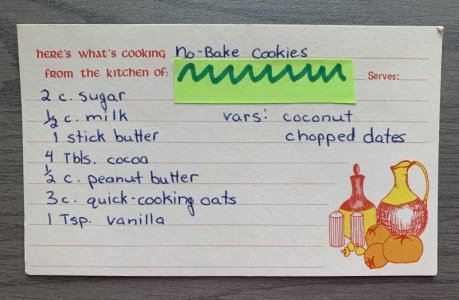 here's what's cooking No-Bake Cookies
from the kitchen of:
Serves:
2 c. sugar
½ c. milk
vars: coconut
1 stick butter
chopped dates
4 Tbls. cocoa
½ c. peanut butter
3 c. quick-cooking oats
1 Tsp. vanilla